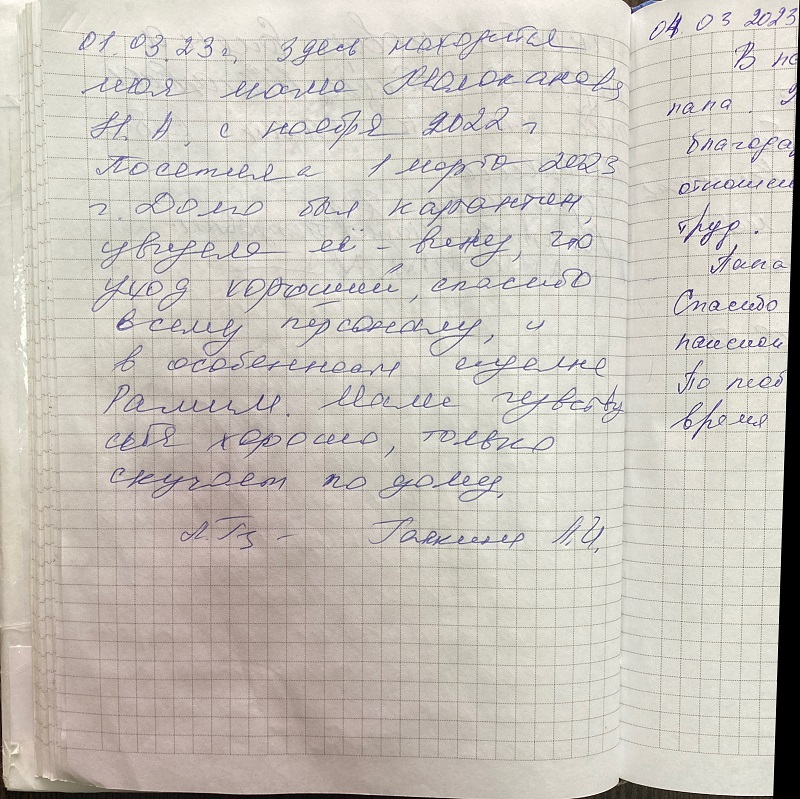 01.03.23г, Здесь находится
моя мама Молоканова
Н. А. с ноября 2022 г
Посетила 1 марта 2023
г. Долго был карантин,
увидела её - вижу, что
уход хороший, спасибо
всему персоналу, и
в особенном
Рамим. Мама чувству
себя хорошо, только
скучает по дому.
Галкина Л.И.
04 03 2023
В
папа.
благода
отношен
труд.
Папа
Спасибо
пансион
По
время